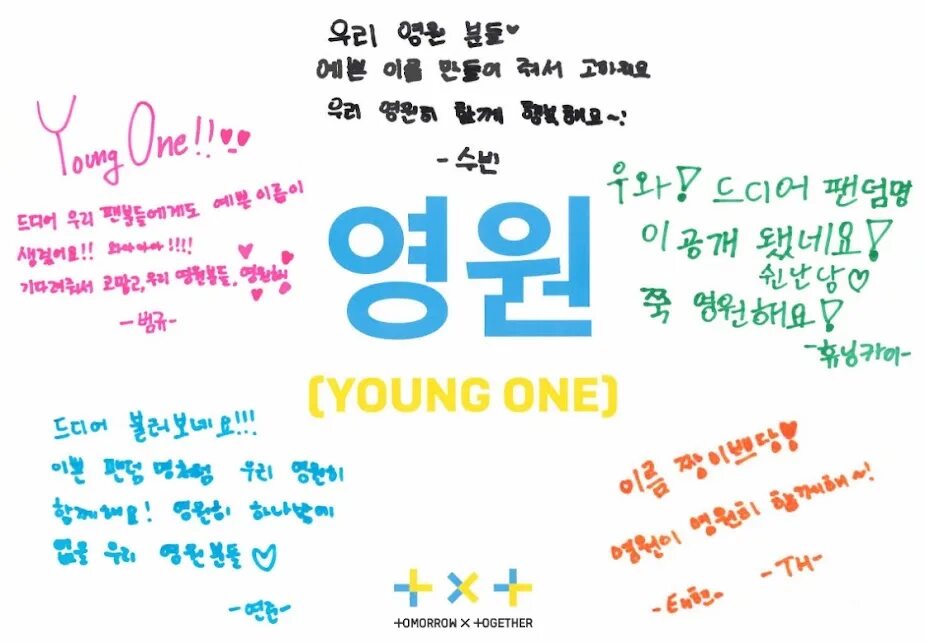 우리 영원 분들♥
예쁜 이름 만들어 줘서 고마워요
우리 영원히 함께 행복해요~!
-수빈
Young One!!
드디어 우리 팬분들에게도 예쁜 이름이
생겼어요!! 와아아아!!!!
기다려줘서 고맙고, 우리 영원분들, 영원해
-범규-
우와! 드디어 팬덤명
이 공개 됐네요!
쉰난남♡
쭉 영원해요!
-휴닝카이-
영원
(YOUNG ONE)
드디어 불러보네요!!!
이쁜 팬덤 명처럼 우리 영원히
함께해요! 영원히 하나밖에
없을 우리 영원분들♡
-연준-
이름 짱이쁘당♥
영원이 영원히 함께해~!
-태현- -TH-
TOMORROW X TOGETHER